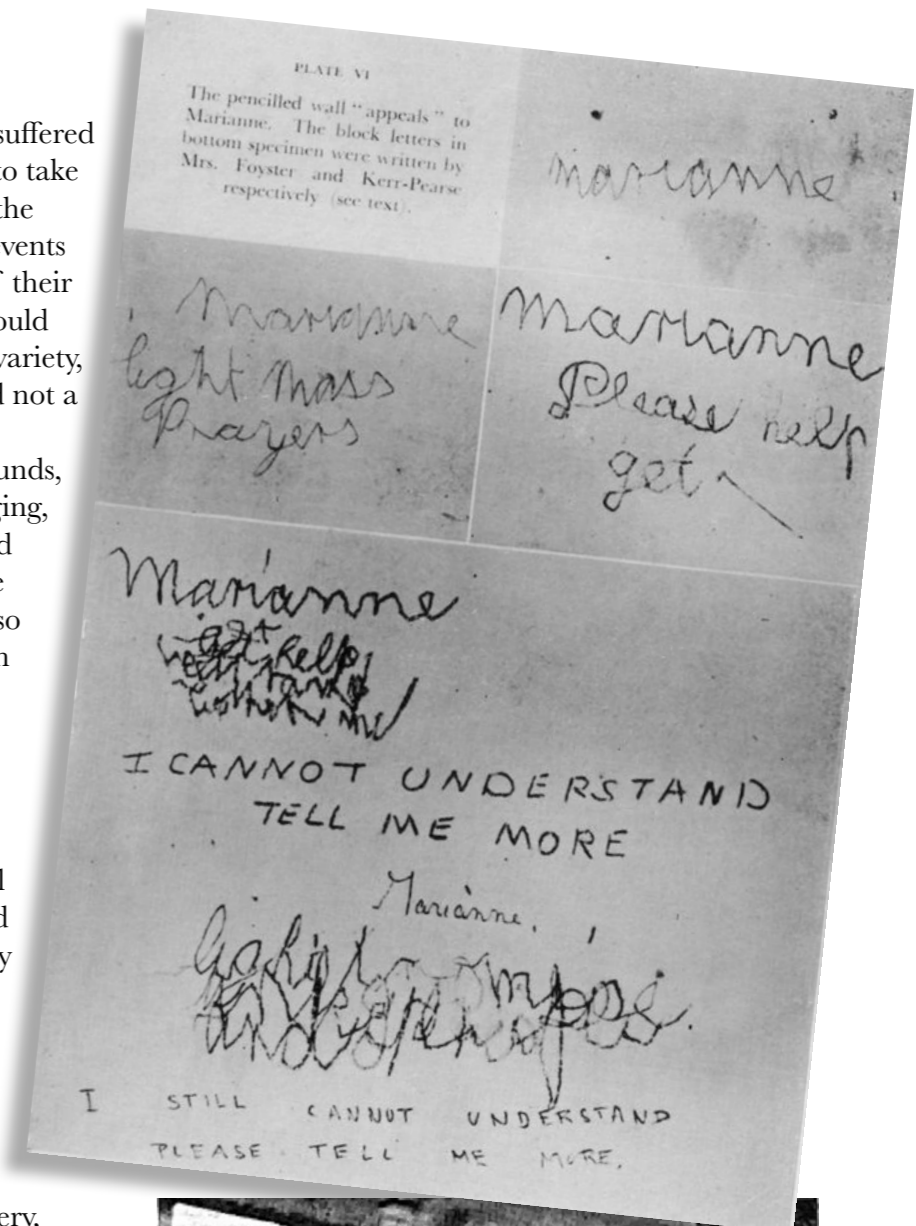 suffered
to take
the
events
their
ould
variety,
d not a
unds,
ging,
d
e
so
n
l
d
y
ery,
PLATE VI
The pencilled wall "appeals" to
Marianne. The block letters in
bottom specimen were written by
Mrs. Foyster and Kerr-Pearse
respectively (see text).
marianne
Marianne
light mass
Prayers
Marianne
Please help
get
Marianne
get help
me
I CANNOT UNDERSTAND
TELL ME MORE
Marianne.
I STILL CANNOT UNDERSTAND
PLEASE TELL ME MORE.